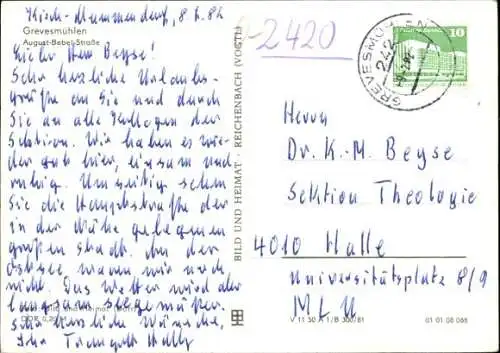 Kirch-Mummendorf, 8.7.82
Grevesmühlen
August-Bebel-Straße
Lieber Herr Beyse!
Sehr herzliche Urlaubs-
grüße an Sie und durch
Sie an alle Kollegen der
Sektion. Wir haben es wie-
der gut hier, einsam und
ruhig. Umseitig sehen
Sie die Hauptstraße der
in der Nähe gelegenen
großen Stadt. An der
Ostsee waren wir noch
nicht. Das Wetter wird aber
langsam
herzliche Wünsche,
Ihr
BILD UND HEIMAT · REICHENBACH (VOGTL)
2420
GREVESMÜHLEN
242
10
Herrn
Dr. K.-M. Beyse
Sektion Theologie
4010 Halle
Universitätsplatz 8/9
MLU
V 11 50 A 1/B 300/81 01 01 08 068